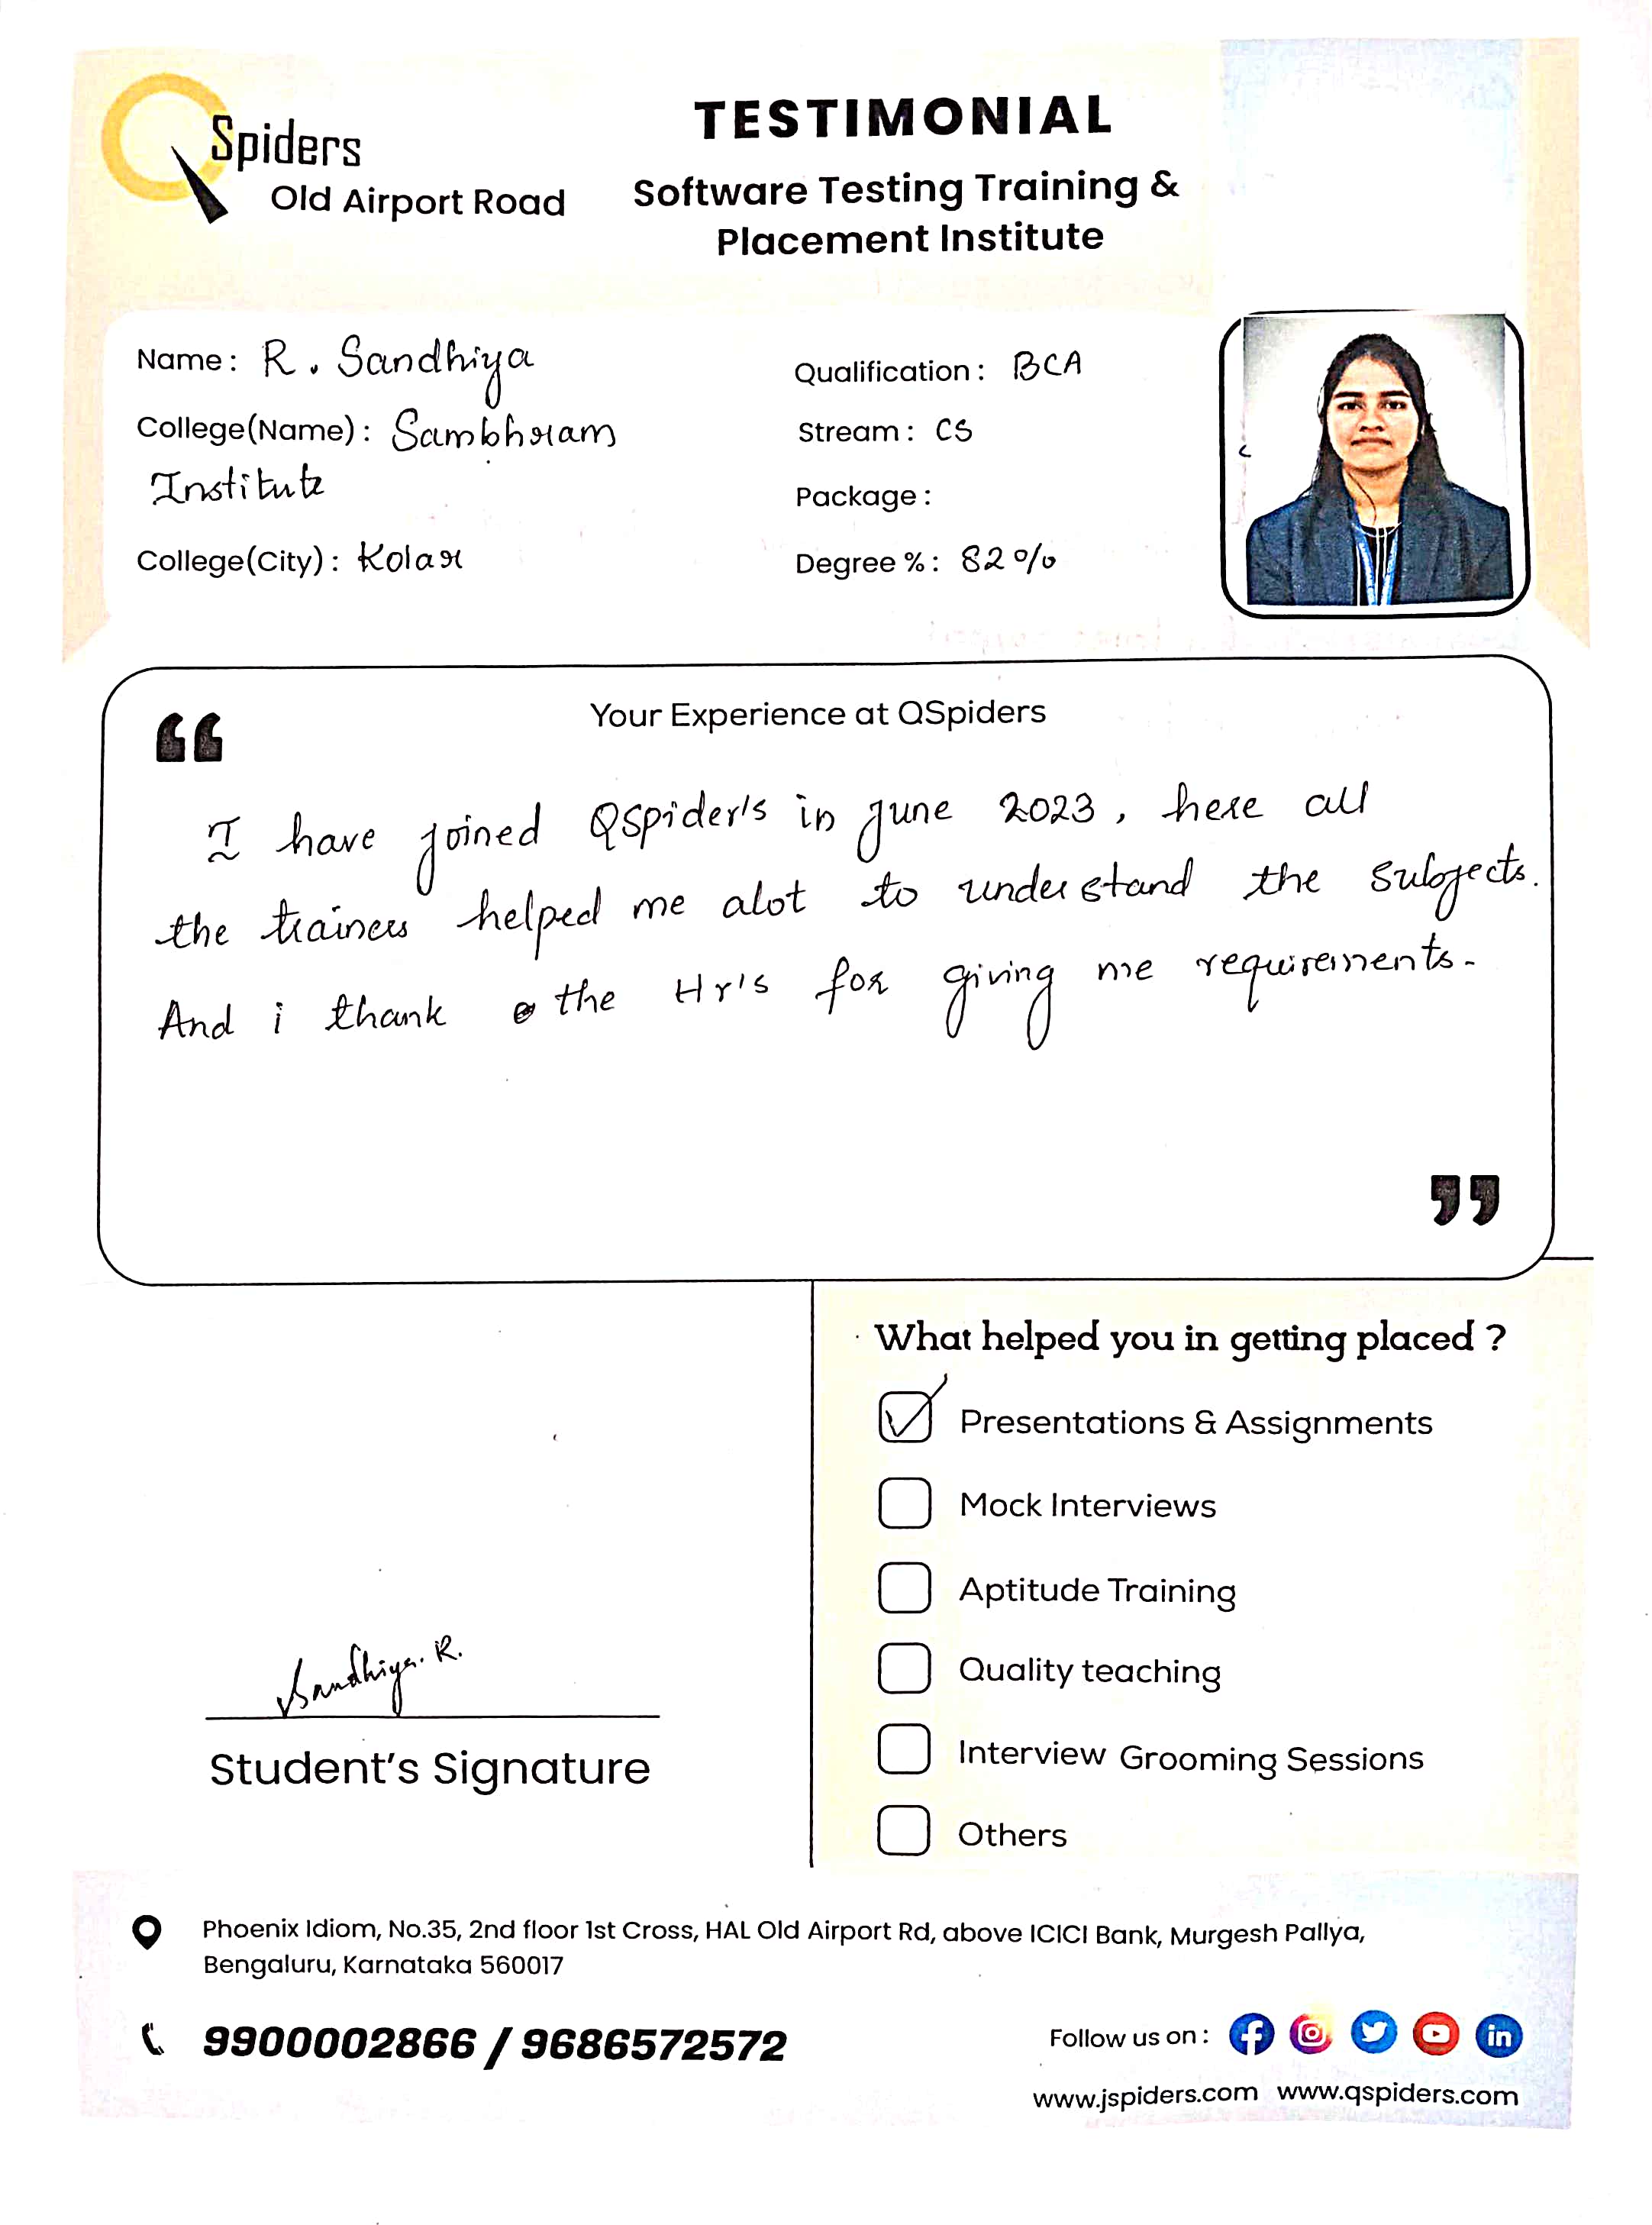 QSpiders
Old Airport Road
TESTIMONIAL
Software Testing Training &
Placement Institute
Name : R. Sandhiya
College(Name) : Sambhram
Institute
College(City) : Kolar
Qualification : BCA
Stream : CS
Package :
Degree % : 82%
Your Experience at QSpiders
“
I have joined QSpider's in june 2023, here all
the trainers helped me alot to understand the subjects.
And i thank the Hr's for giving me requirements.
”
What helped you in getting placed ?
Presentations & Assignments
Mock Interviews
Aptitude Training
Quality teaching
Interview Grooming Sessions
Others
Sandhiya. R.
Student's Signature
Phoenix Idiom, No.35, 2nd floor 1st Cross, HAL Old Airport Rd, above ICICI Bank, Murgesh Pallya,
Bengaluru, Karnataka 560017
9900002866 / 9686572572
Follow us on :
www.jspiders.com www.qspiders.com